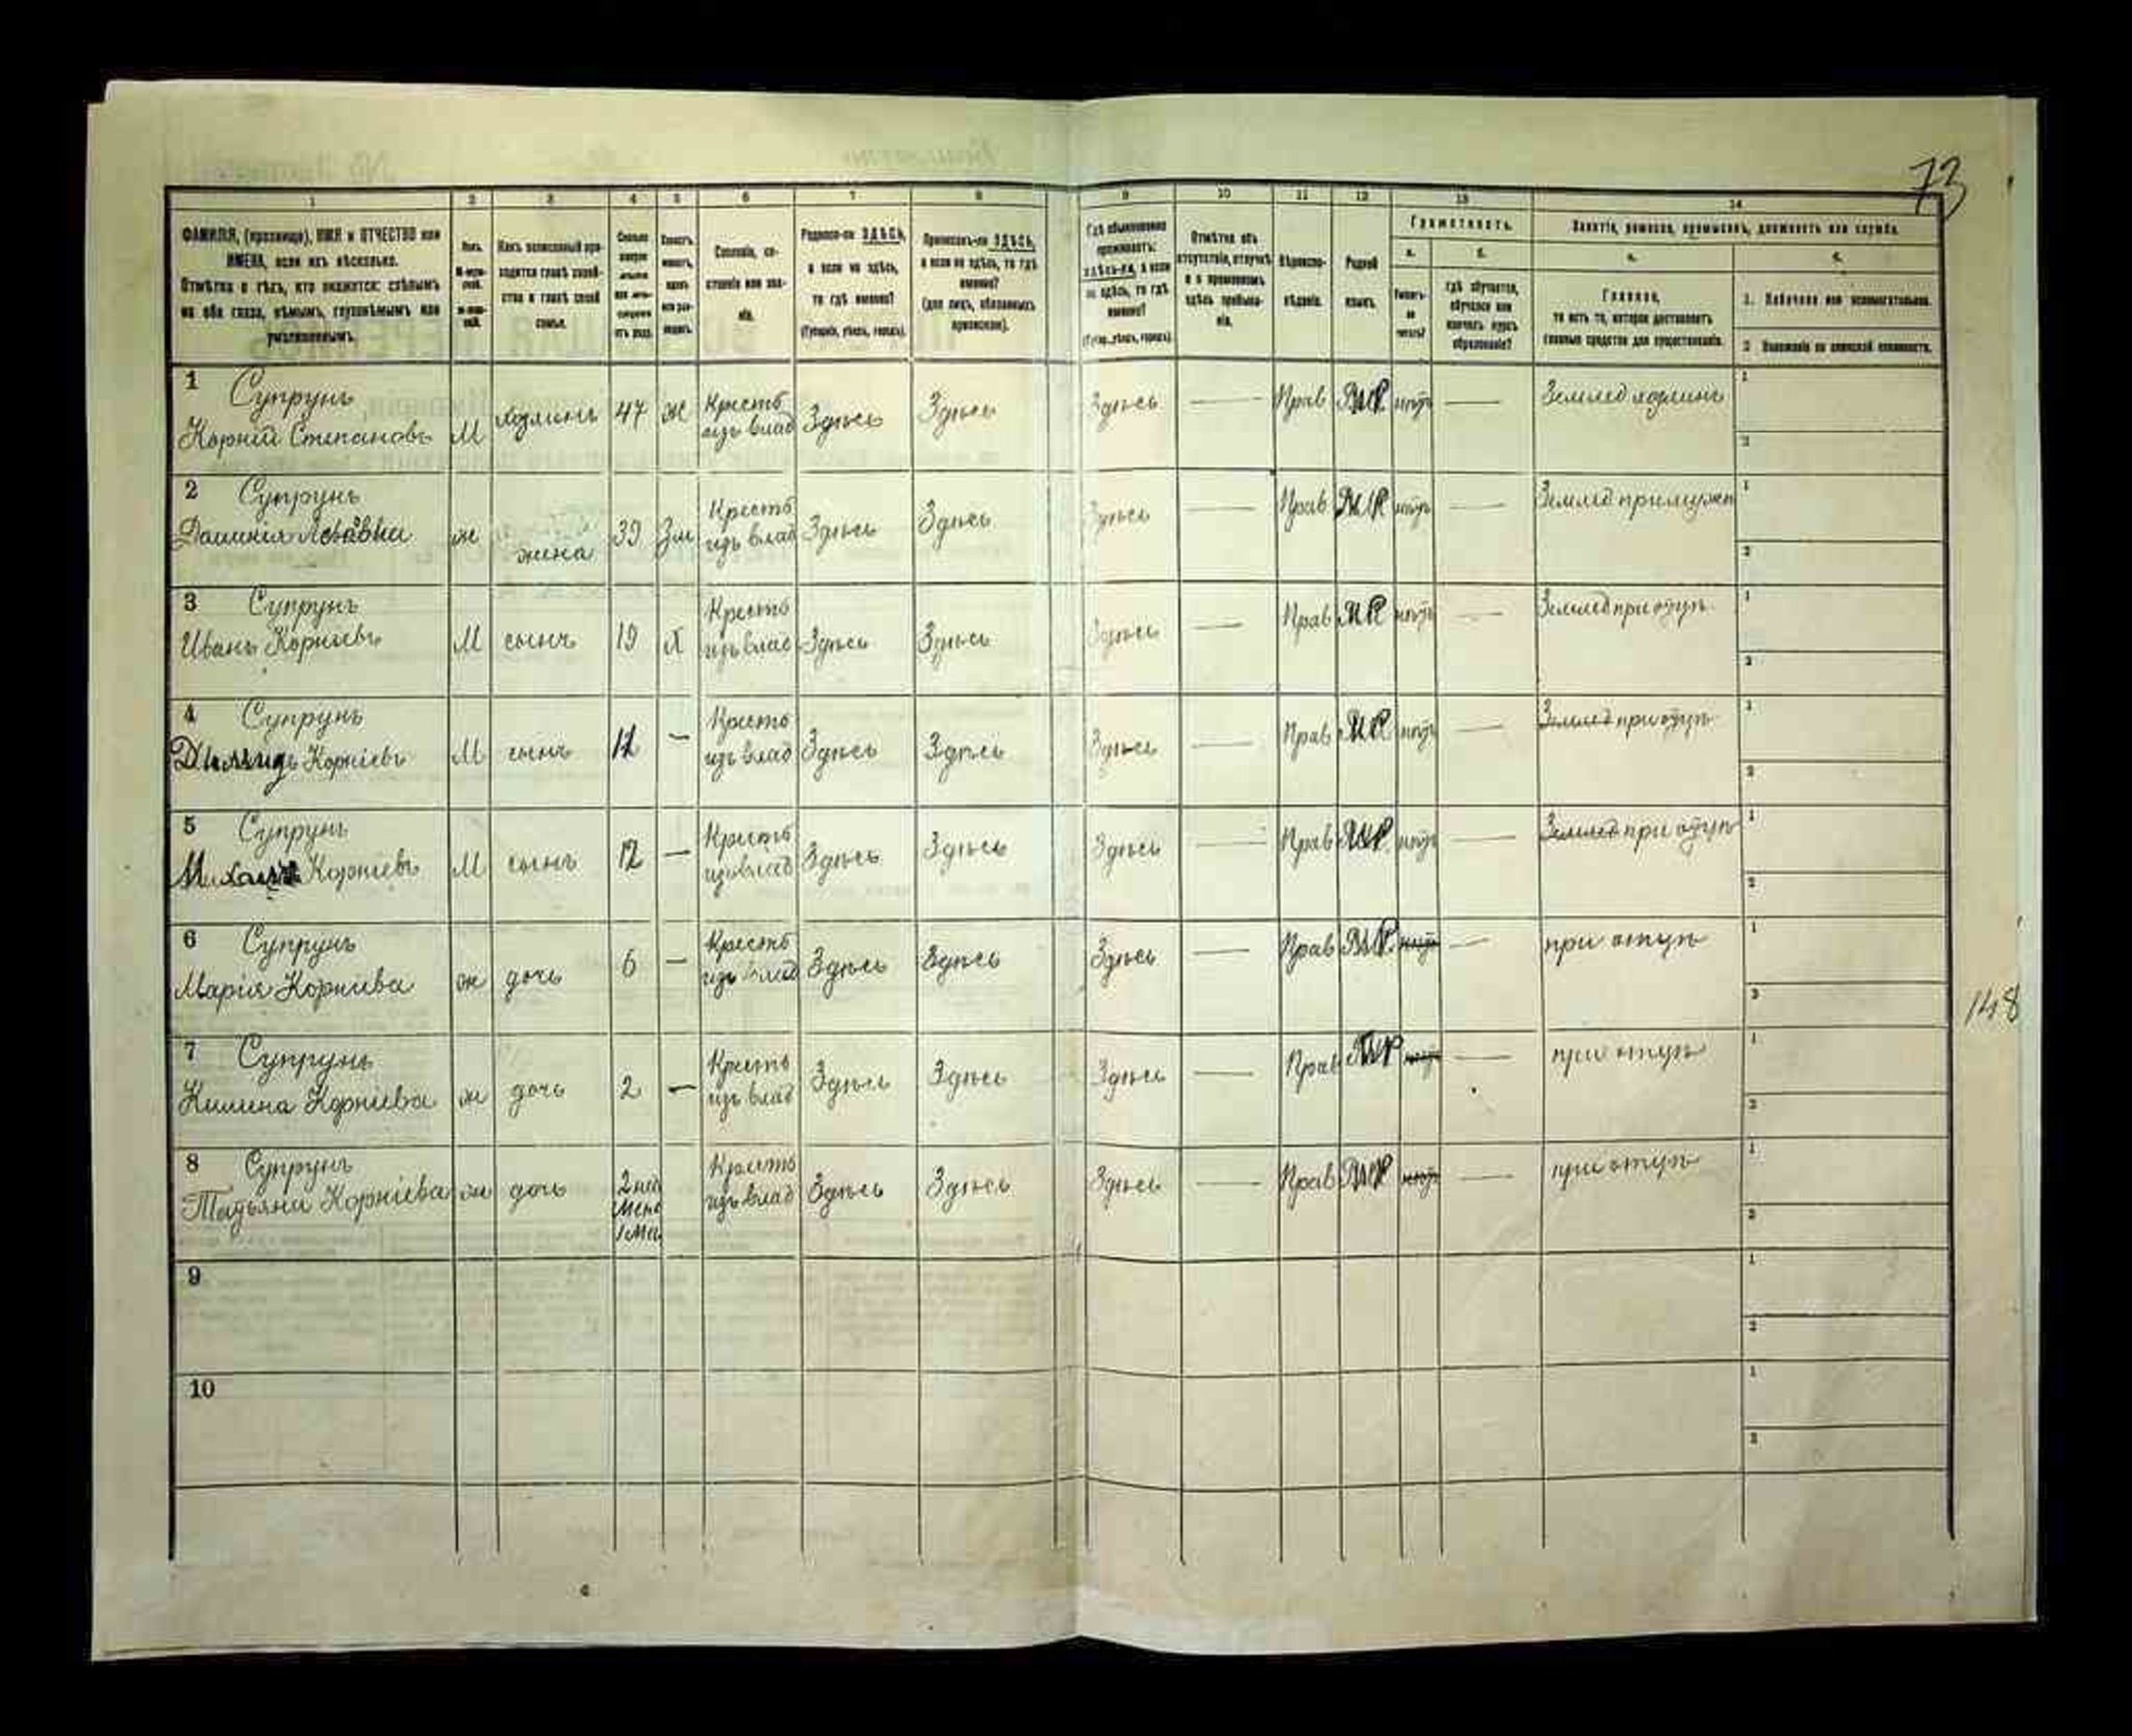 73
1 2 3 4 5 6 7 8 9 10 11 12 13 14
ФАМИЛІЯ, (прозвище), ИМЯ и ОТЧЕСТВО или
ИМЕНА, если ихъ нѣсколько.
Отмѣтка о тѣхъ, кто окажется: слѣпымъ
на оба глаза, нѣмымъ, глухонѣмымъ или
умалишеннымъ.
Полъ.
Какъ записанный при-
ходится главѣ хозяй-
ства и главѣ своей
семьи.
Сословіе, со-
стояніе или зва-
ніе.
Родился-ли ЗДѢСЬ,
а если не здѣсь,
то гдѣ именно?
(Губернія, уѣздъ, городъ).
Приписанъ-ли ЗДѢСЬ,
а если не здѣсь, то гдѣ
именно?
(для лицъ, обязанныхъ
припискою).
Гдѣ обыкновенно
проживаетъ:
здѣсь-ли, а если
не здѣсь, то гдѣ
именно?
(Губер., уѣздъ, городъ).
Отмѣтка объ
отсутствіи, отлучкѣ
и о временномъ
здѣсь пребыва-
ніи.
Вѣроиспо-
вѣданіе.
Родной
языкъ.
Грамотность.
а. б.
Умѣетъ-
ли
читать?
гдѣ обучается,
обучался или
кончилъ курсъ
образованія?
Занятіе, ремесло, промыселъ, должность или служба.
а. б.
Главное,
то есть то, которое доставляетъ
главныя средства для существованія.
1. Побочное или вспомогательное.
2 Положеніе по воинской повинности.
1 Супрунъ
Корній Степановъ М хозяинъ 47 ж Крестб изъ влад Здѣсь Здѣсь Здѣсь — Прав нѣтъ — Землед хозяинъ 1 2
2 Супрунъ
ж жена 39 Зм Крестб изъ влад Здѣсь Здѣсь Здѣсь — Прав нѣтъ — Землед при мужѣ 1 2
3 Супрунъ
Иванъ Корніевъ М сынъ 19 Х Крестб изъ влад Здѣсь Здѣсь Здѣсь — Прав нѣтъ — Землед при отцѣ 1 2
4 Супрунъ
Корніевъ М сынъ — Крестб изъ влад Здѣсь Здѣсь Здѣсь — Прав нѣтъ — Землед при отцѣ 1 2
5 Супрунъ
Корніевъ М сынъ 12 — Крестб изъ влад Здѣсь Здѣсь Здѣсь — Прав нѣтъ — Землед при отцѣ 1 2
6 Супрунъ
Марія Корніева ж дочь 6 — Крестб изъ влад Здѣсь Здѣсь Здѣсь — Прав нѣтъ — при отцѣ 1 2
7 Супрунъ
Килина Корніева ж дочь 2 — Крестъ изъ влад Здѣсь Здѣсь Здѣсь — Прав нѣтъ — при отцѣ 1 2
8 Супрунъ
Татьяна Корніева ж дочь Крестъ изъ влад Здѣсь Здѣсь Здѣсь — Прав нѣтъ — при отцѣ 1 2
148
9 1 2
10 1 2